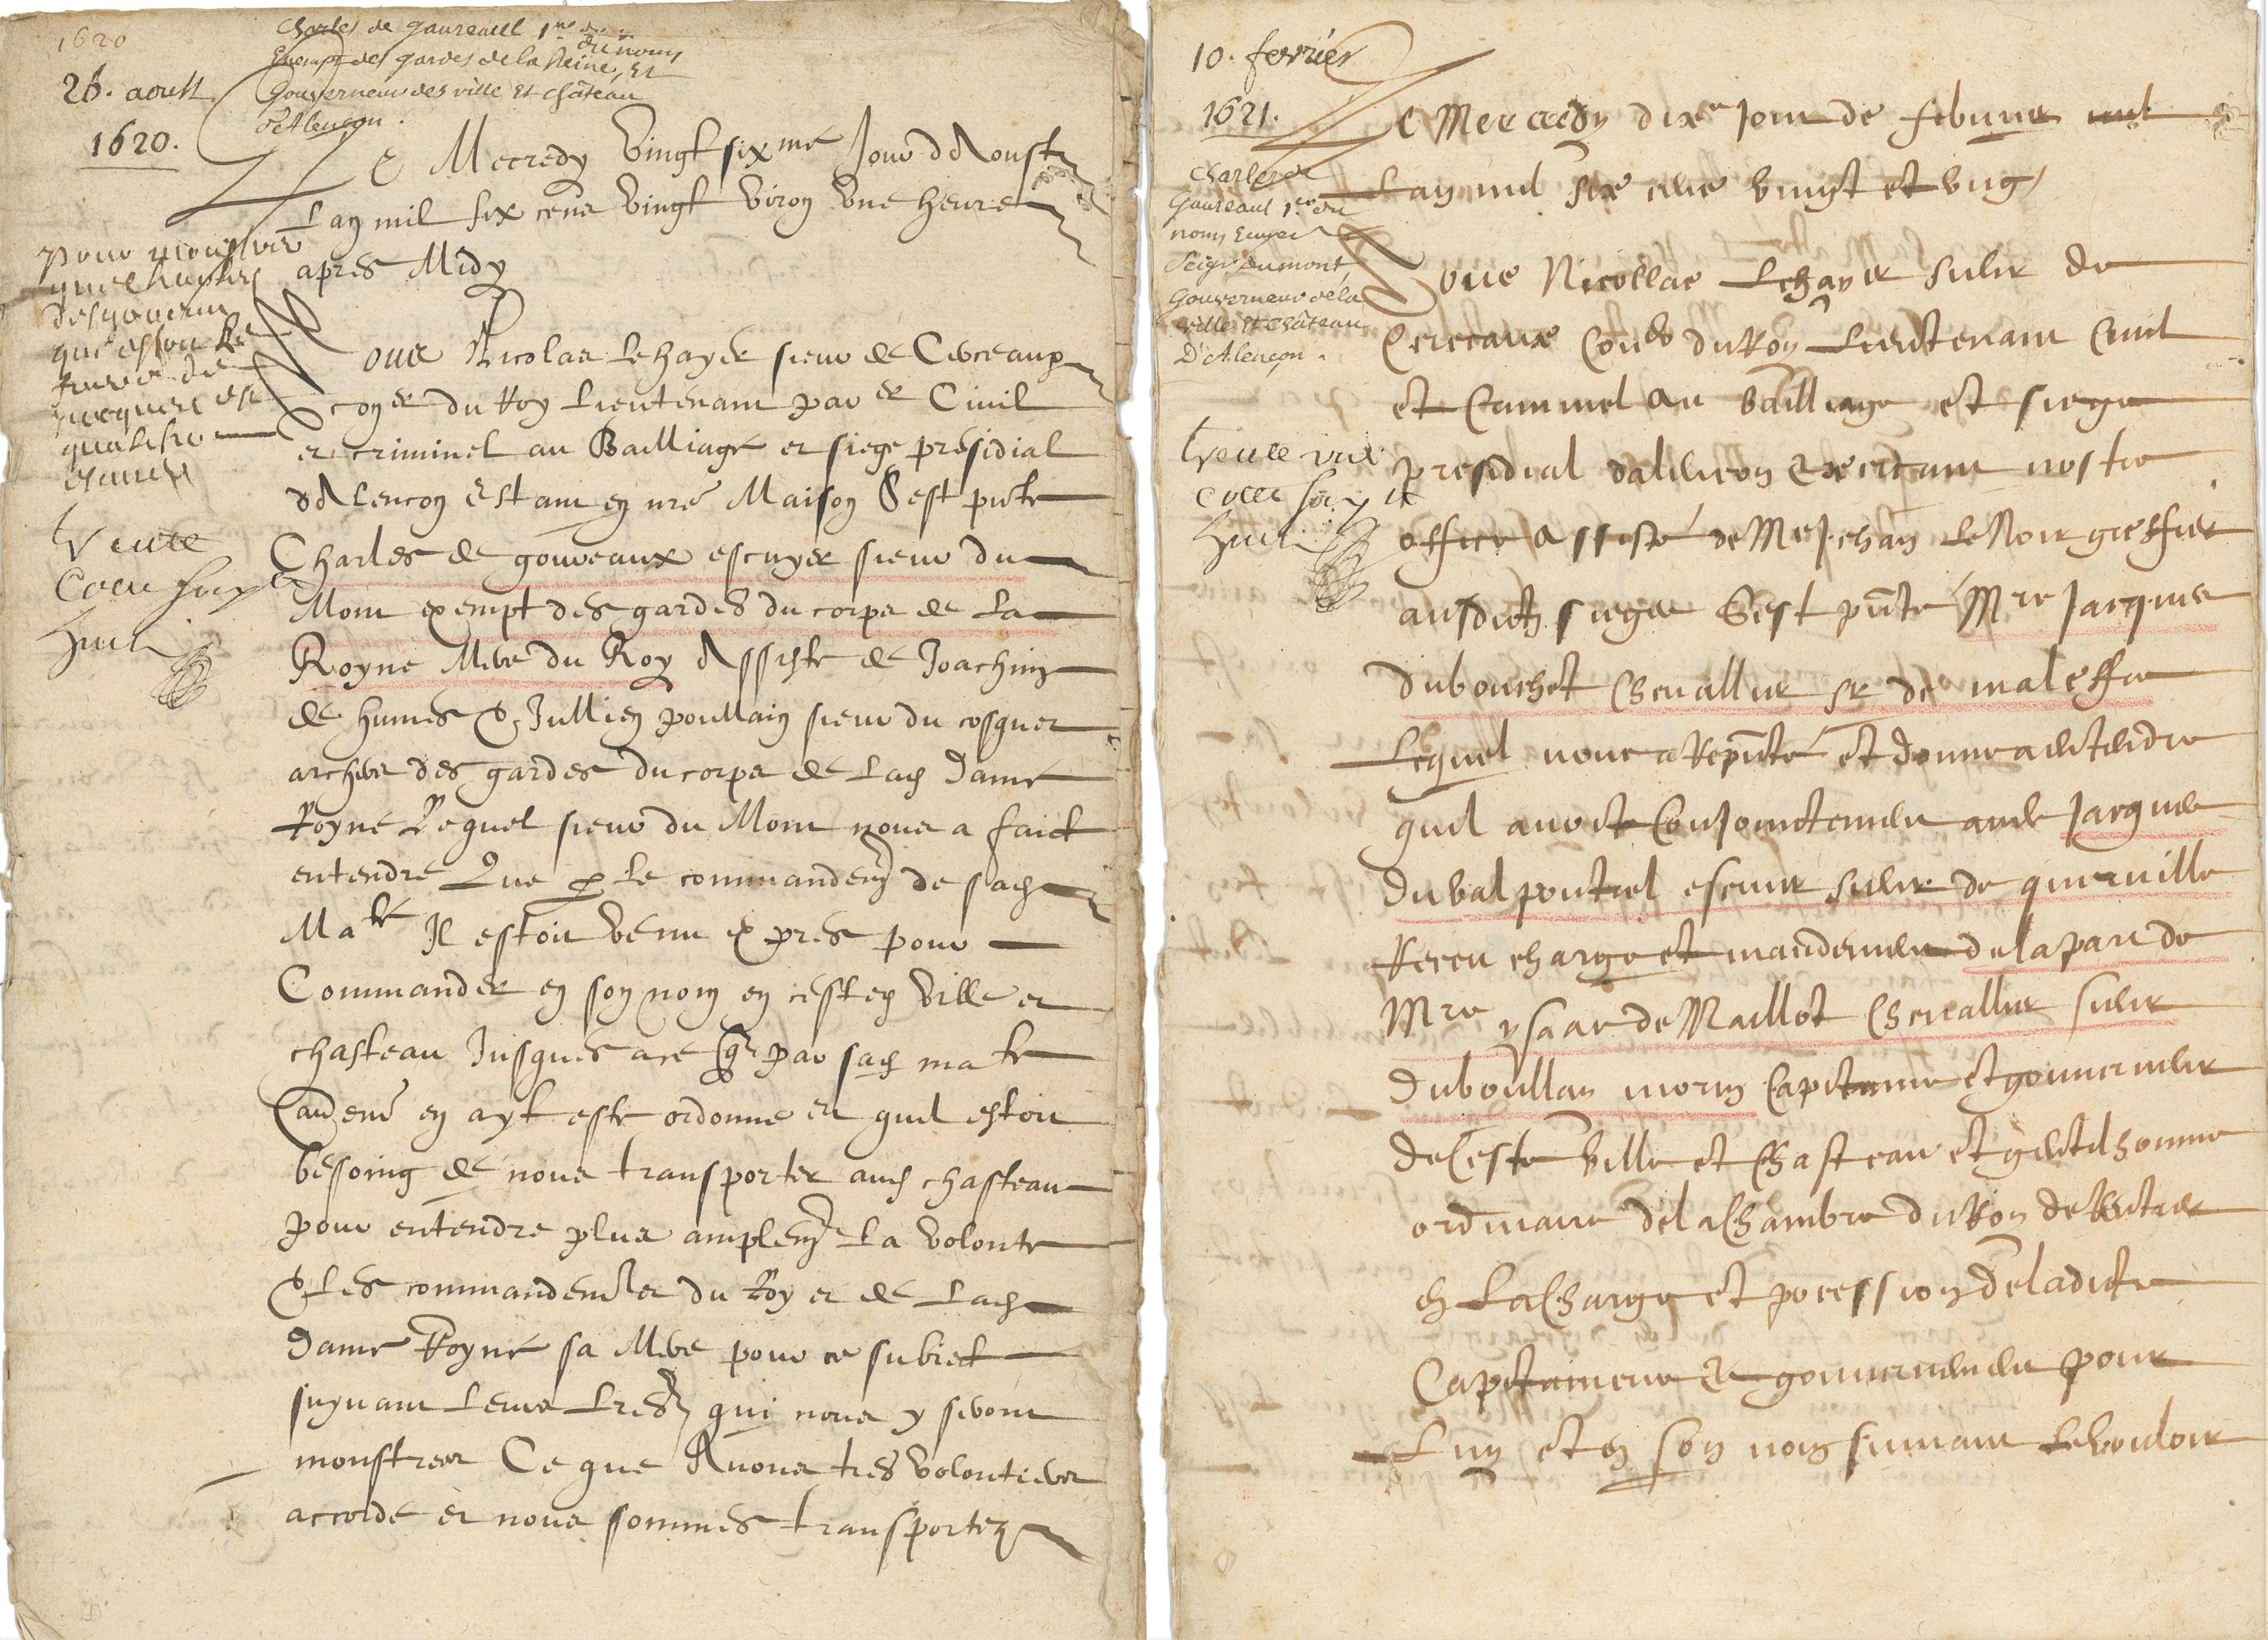 1620
26. aoust
1620.
Charles de Gaureaul 1er du nom
Exempt des gardes de la Reine, Et
Gouverneur des ville Et Château
d'Alençon.
Le Mecredy vingt sixme Jour d Aoust
Lan mil six cens vingt viron une heure
apres Midy
Pour monstrer
quel
Nous Nicolas Lehayer sieur de Cerceaux
coner du Roy Lieutenant par er Civil
et criminel au Bailliage et siege presidial
d Alencon Estant en nre Maison S est pnte
Charles de gouveaux escuyer sieur du
Mont exempt des gardes du corps de La
Royne Mere du Roy Assiste de Joachim
de humes & Jullien poullain sieur du cosquer
archers des gardes du corps de Lad Dame
Royne Lequel sieur du Mont nous a faict
entendre Que p Le commandemt de sad
Mate Il estoit venu expres pour
Commander en son nom en ceste ville et
chasteau Jusques a ce q par sad mate
aultremt en ayt este ordonne et quil estoit
besoing de nous transporter aud chasteau
pour entendre plus amplemt La volonte
& Les commandemts du Roy et de Lad
Dame Royne sa Mere pour ce subiect
suyvant Leurs Lres qui nous y seront
monstrees Ce que Avons tres volontiers
accorde et nous sommes transportez
Trente
huit
10. fevrier
1621.
Charles de
Gaureaul 1er du
nom Ecuyer
Seigr dumont,
Gouverneur de la
ville Et Château
D'Alençon.
Le Mercredy dixe Jour de febvrier
Lan mil six cens vingt et ung
Nous Nicollas Lehayer sieur de
Cerceaux Coner du Roy Lieutenant Civil
et Criminel au bailliage et siege
presidial dalencon Exercant nostre
office Assisté de Me Jehan LeNoir greffier
ausdictz sieges S'est pnte Mre Jacques
dubouchet Chevallier sr de maleffre
Lequel nous a Repnté et donne a entendre
quil avoit Conjoinctement avec Jacques
duval pontrel escuier sieur de querville
Receu charge et mandement de la part de
Mre ysaac de Maillot Chevallier sieur
duboullay morin Capitaine et gouverneur
de Ceste ville et Chasteau et gentilhomme
ordinaire de la Chambre du Roy de Rentrer
en La Charge et pocession de ladicte
Capitainerie & gouvernement pour
Luy et en son nom suivant Le vouloir